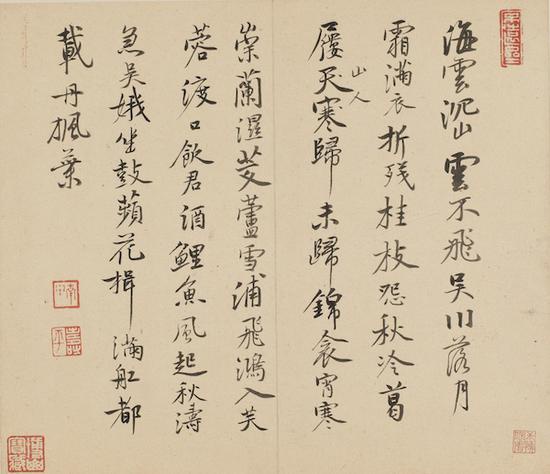 海雲沉〻雲不飛吳川落月
霜滿衣折残桂枝怨秋冷葛
屨天寒歸未歸錦衾宵寒
山人
崇蘭濕茭蘆雪浦飛鴻入芙
蓉渡口飲君酒鯉魚風起秋濤
急吳娥坐鼓蘋花楫滿舡都
載丹楓葉